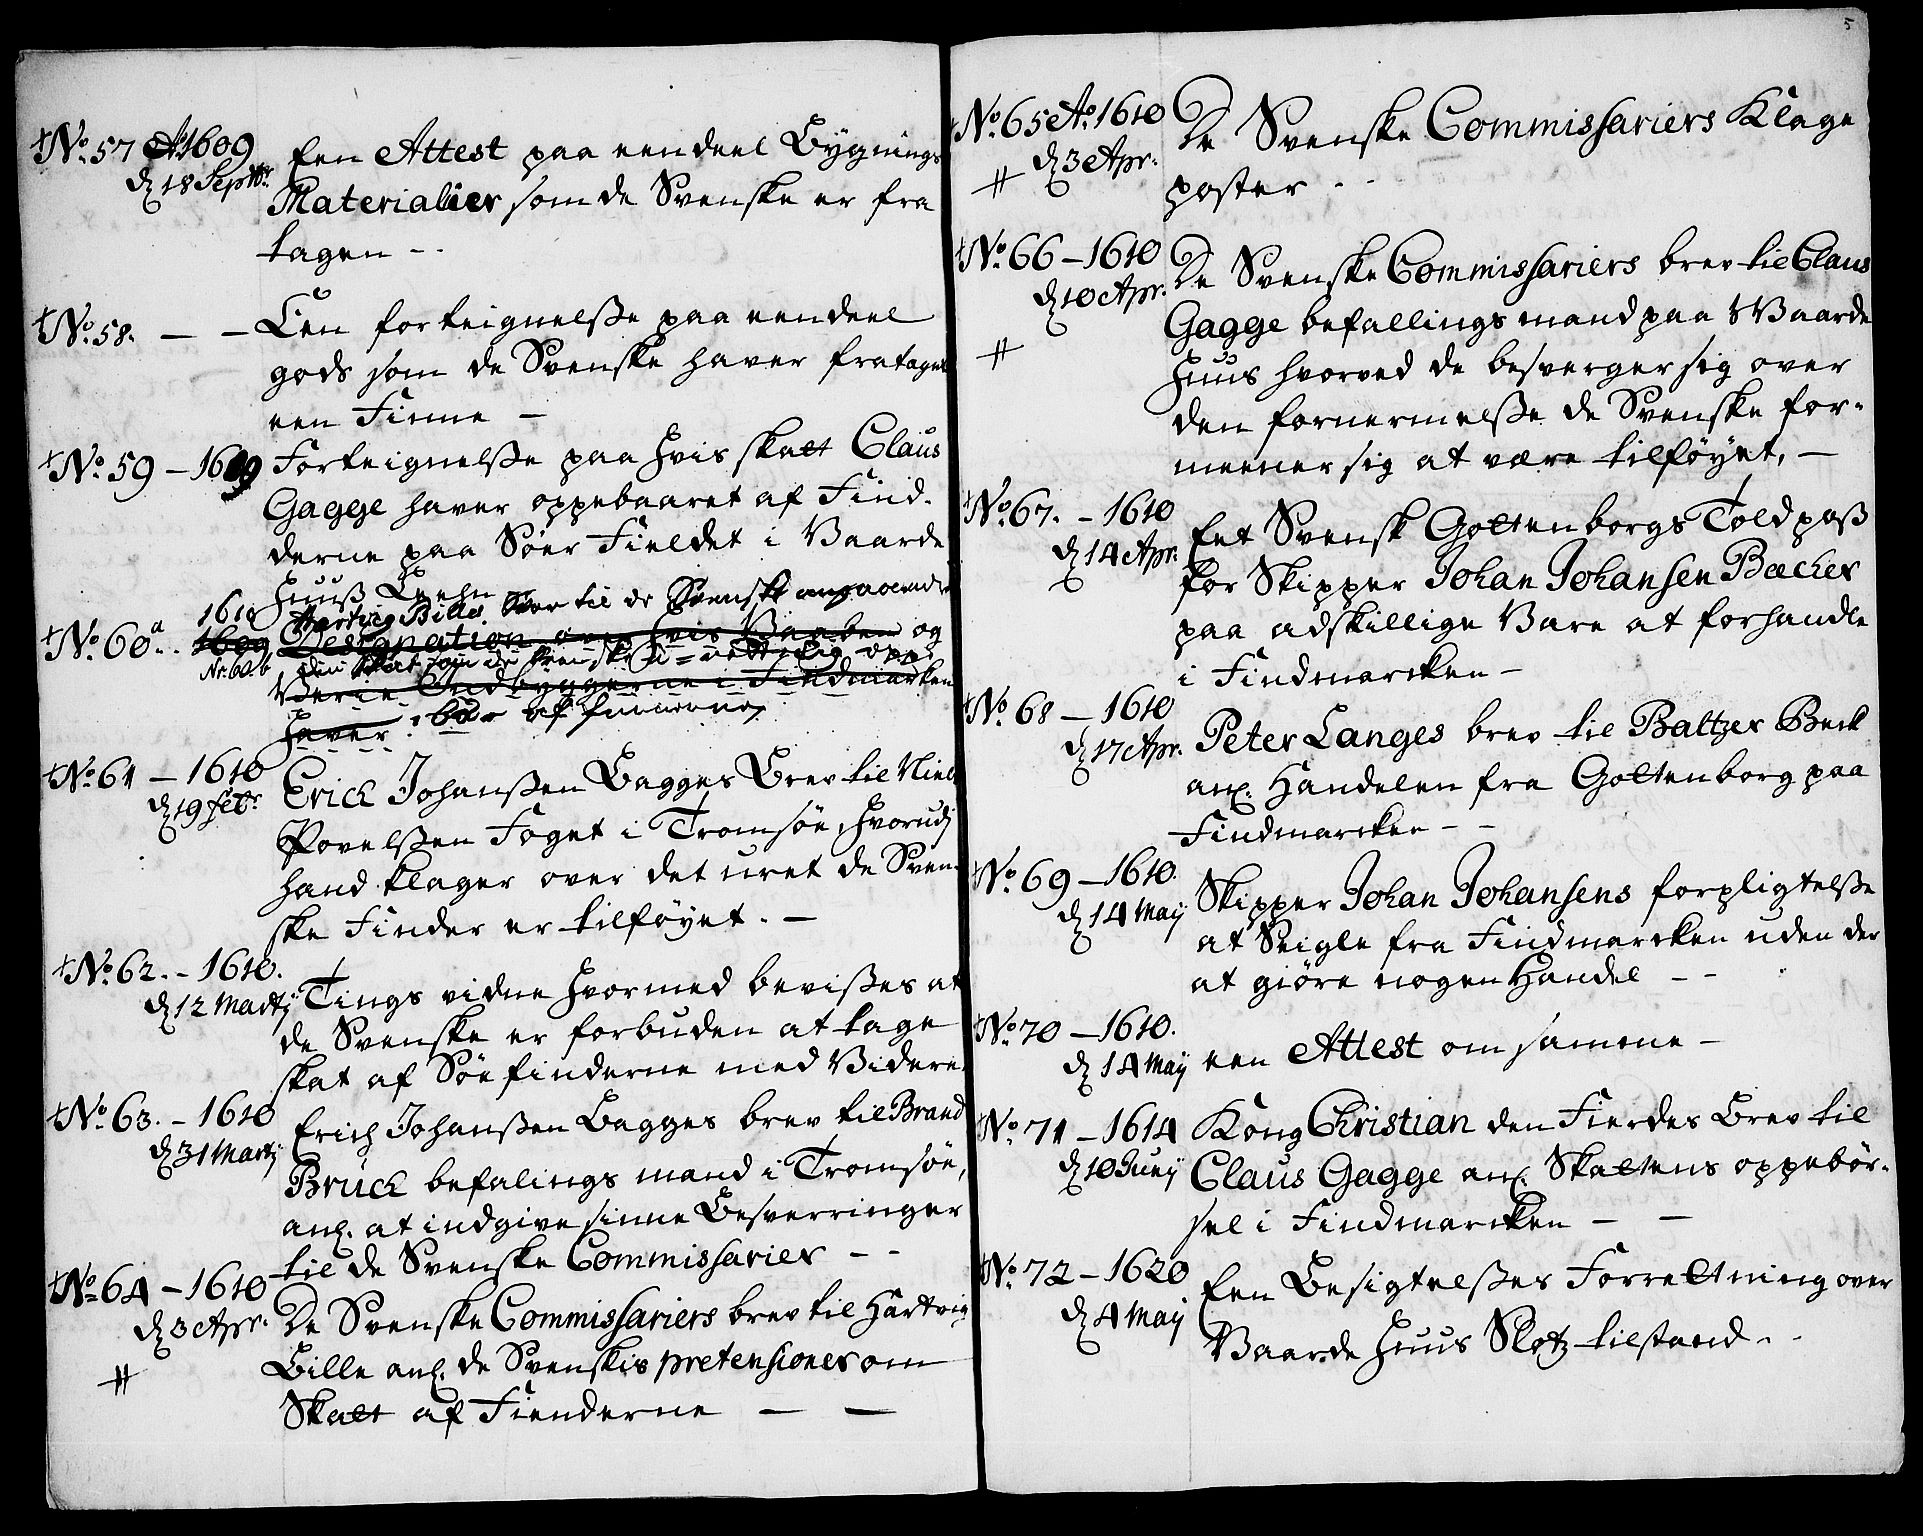 +No. 57 Ao 1609
d. 18 Septbr.
Een Attest paa een deel Bygnings
Materialier som de Svenske er fra
tagen --
+No. 58. — — Een forteignelsse paa een deel
gods som de Svenske haver fratagen
een Finne —
+No. 59 — 1609 Forteignelsse paa hvis skatt Claus
Gagge haver oppebaaret af Find-
derne paa Söer Fieldet i Vaarde
Huuss Leehn
+No. 60a. 1610
1609
No. 60.b
Hartvig Billes Brev til de Svenske angaaende
Designation over hvis Vaaben og
den Skat som de Svenske u-rettelig opp-
Verie Indbyggerne i Findmarken
haver : bær af finnerne
+No. 61 — 1610
d. 19 Febr.
Erich Johanssen Bagges Brev til Niels
Povelssen Foget i Tromsöe, hvorudj
hand klager over det uret de Sven-
ske Finder er tilföyet. —
+No. 62. - 1610.
d. 12 Martij
Tings vidne hvormed bevisses at
de Svenske er forbuden at tage
skat af Söefinderne med Videre.
+No. 63. - 1610
d. 31 Martij
Erich Johanssen Bagges brev til Brand
Brück befalings mand i Tromsöe,
anl. at indgive sinne Besverringer
til de Svenske Commissarier --
+No. 64 — 1610
d. 3 Apr.
#
De Svenske Commissariers brev til Hartvig
Bille anl. de Svenskis pretensioner om
Skatt af Fienderne — —
5
+No. 65 Ao. 1610
d. 3 Apr.
#
De Svenske Commissariers Klage
poster --
+No. 66 — 1610
d. 10 Apr.
#
De Svenske Commissariers brev til Claus
Gagge befallings mand paa Waarde
Huus hvorved de besverger sig over
den fornermelsse de Svenske for-
meener sig at være tilföyet, —
+No. 67. - 1610
d. 14 Apr.
Eet Svensk Gottenborgs Told pass
for Skipper Johan Johansen Bæcker
paa adskillige Vare at forhandle
i Findmarcken —
+No. 68 — 1610
d. 17 Apr.
Peter Langes brev til Baltzer Beck
anl. Handelen fra Gottenborg paa
Findmarcken --
+No. 69 — 1610.
d. 14 May
Skipper Johan Johansens forpligtelsse
at Seigle fra Findmarcken uden der
at giöre nogen Handel --
+No. 70 — 1610.
d. 14 May
een Attest om samme —
+No. 71 — 1614
d. 10 Juny
Kong Christian den Fierdes Brev til
Claus Gagge anl. Skattens oppebör-
sel i Findmarcken — —
+No. 72 — 1620
d. 4 May
Een Besigtelsses Forrettning over
Vaarde Huus Slotz tilstand --